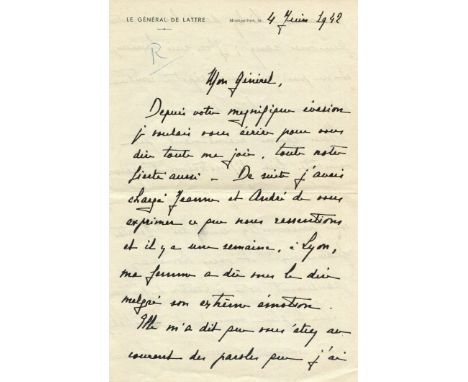 LE GÉNÉRAL DE LATTRE
Montpellier, le 4 Juin 1942
R
Mon Général,
Depuis votre magnifique évasion
je voulais vous écrire pour vous
dire toute ma joie, toute notre
fierté aussi - De suite j'avais
chargé Jeanne et André de vous
exprimer ce que nous ressentions
et il y a une semaine, à Lyon,
ma femme a dû vous le dire
malgré son extrême émotion.
Elle m'a dit que vous étiez au
courant des paroles que j'ai